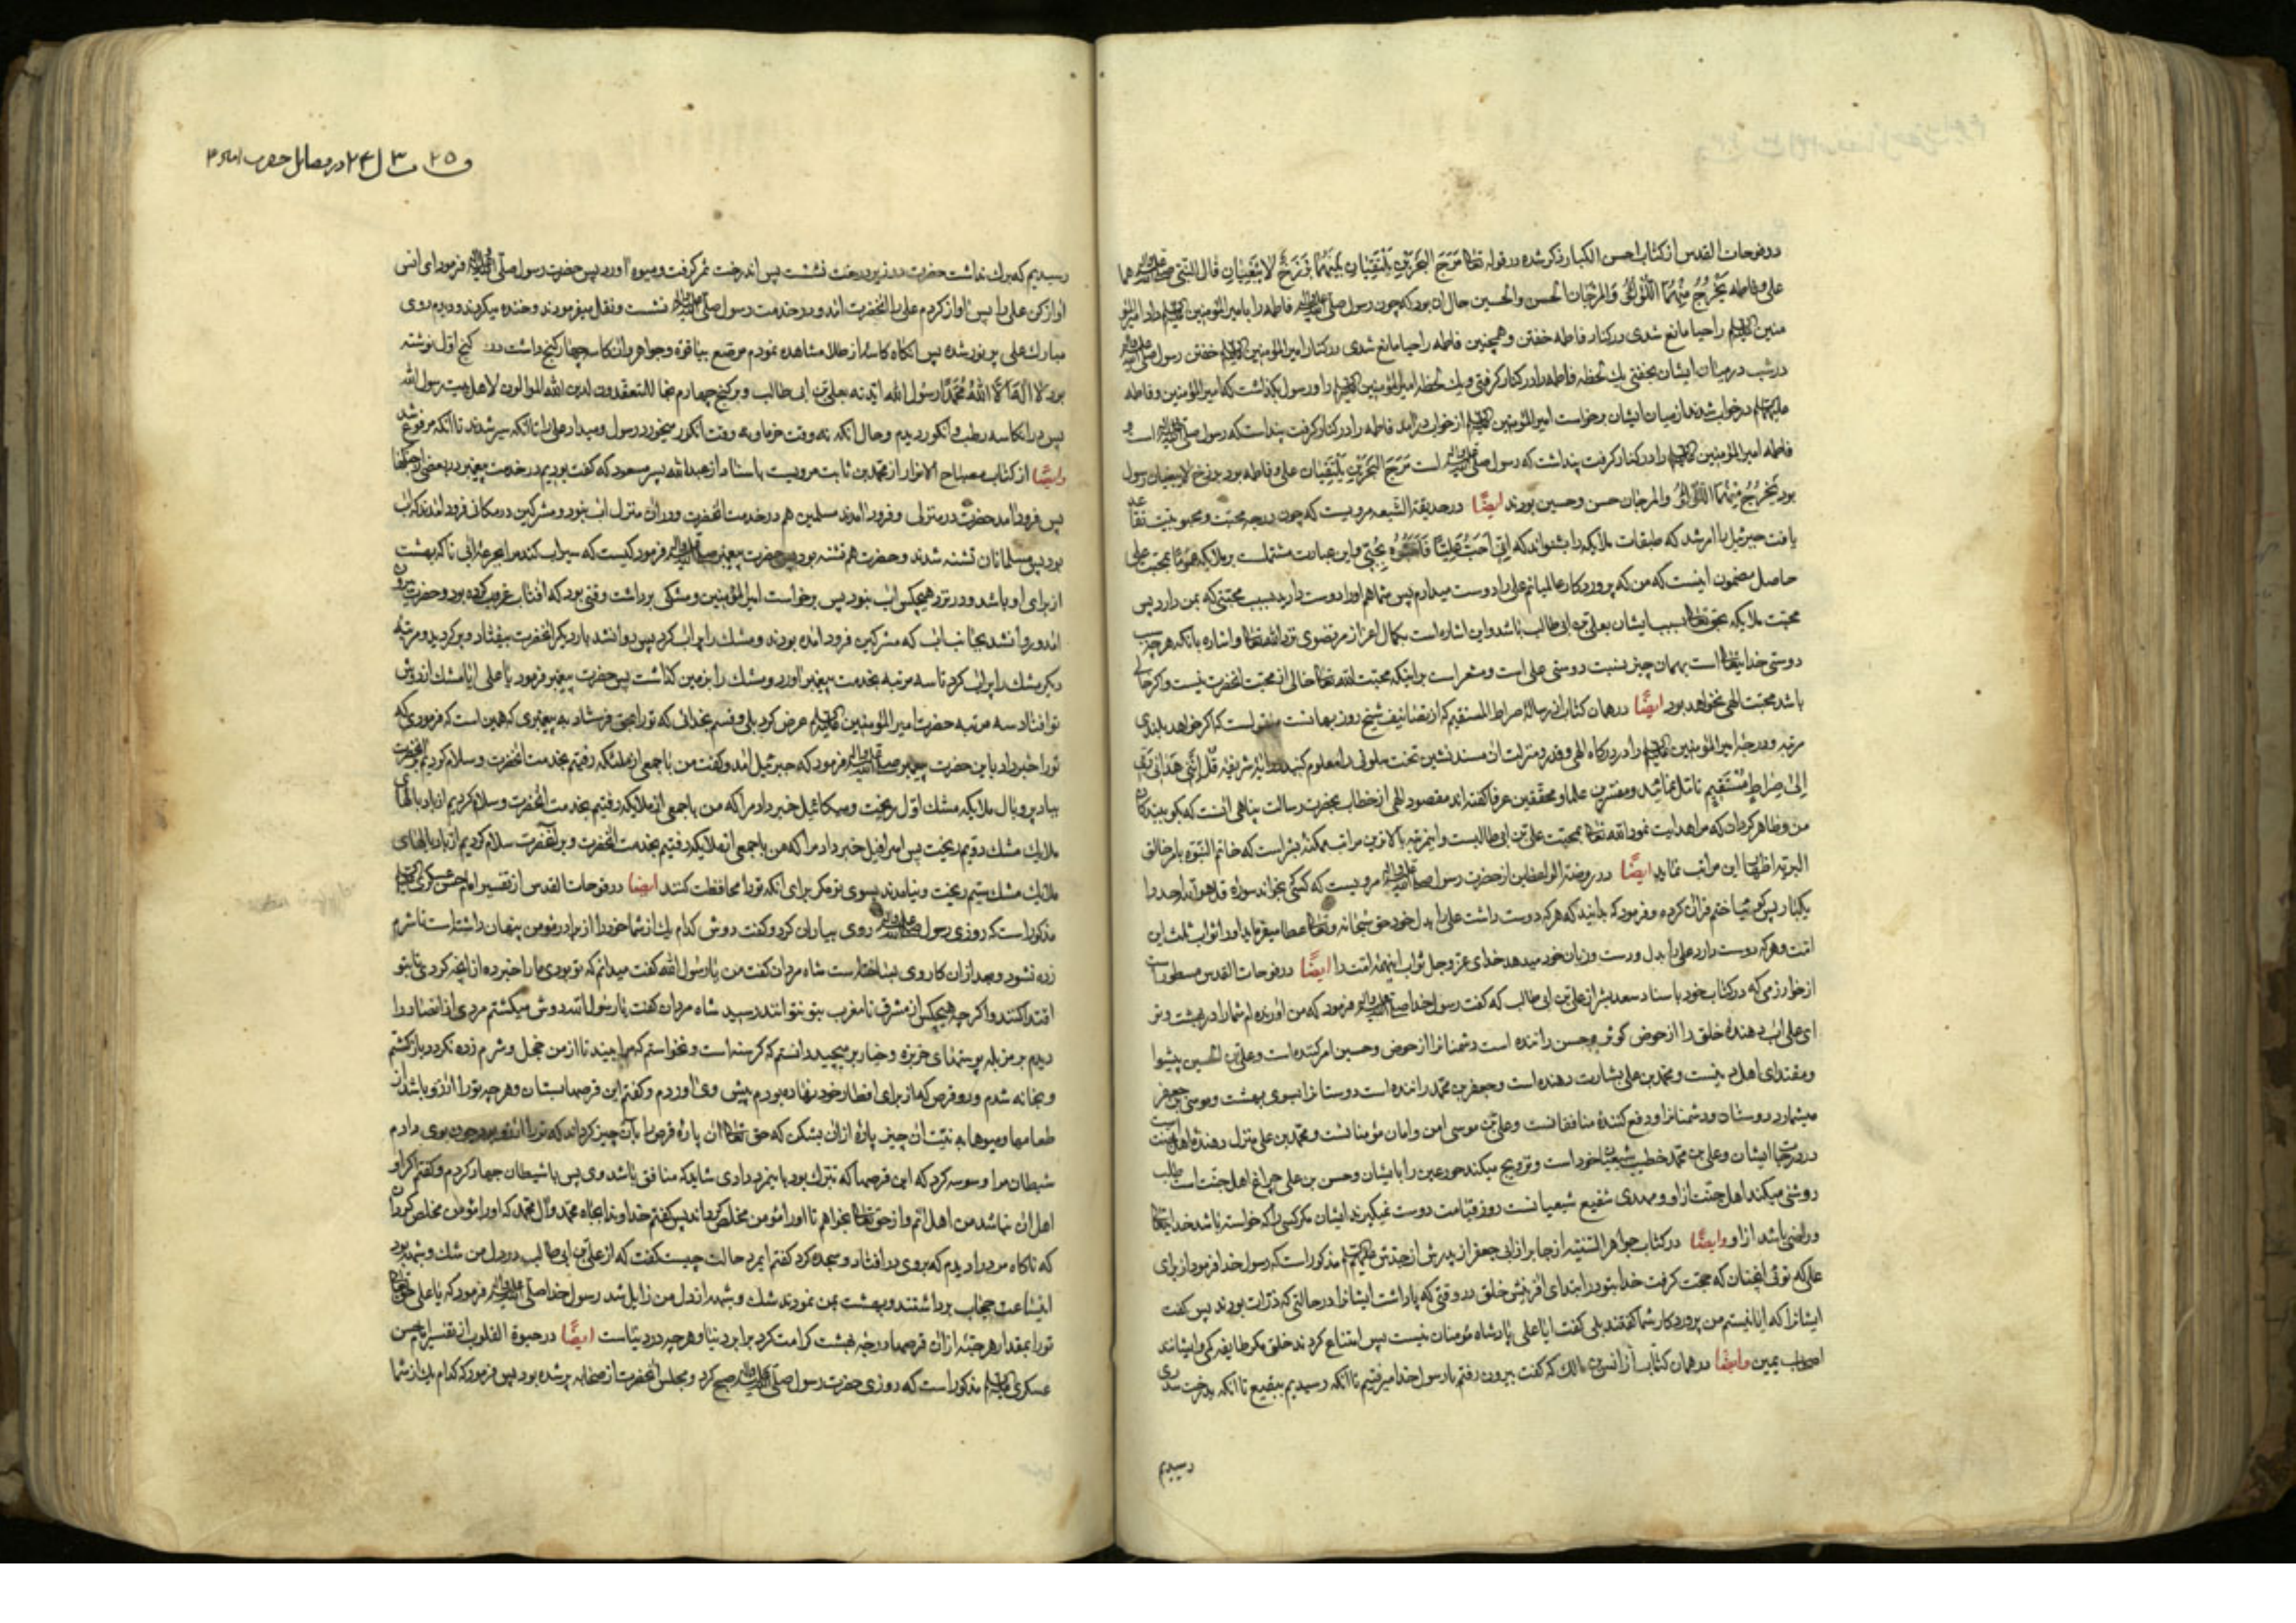 در فوحات القدس از کتاب احسن الکبار ذکر شده در قوله تعا مَرَجَ البَحرَینِ یَلتَقِیانِ بَینَهُمَا بَرزَخٌ لا یَبغِیانِ قال النبی صلی الله علیه واله هما
علی و فاطمه یَخرُجُ مِنهُمَا اللُّؤلُؤُ وَالمَرجَان الحسن والحسین حال ان بود که چون رسول صلی الله علیه واله فاطمه را بامیر المؤمنین علیه السلام داد امیر المؤ
منین علیه السلام را حیا مانع شدی در کنار فاطمه خفتن و همچنین فاطمه را حیا مانع شدی در کنار امیر المؤمنین علیه السلام خفتن رسول صلی الله علیه واله
در شب در میان ایشان بخفتی یک لحظه فاطمه را در کنار کرفتی و یک لحظه امیر المؤمنین علیه السلام را و رسول بکذاشت که امیر المؤمنین و فاطمه
علیهما السلام در خواب شدند از میان ایشان برخواست امیر المؤمنین علیه السلام از خواب درامد فاطمه را در کنار کرفت پنداشت که رسول صلی الله علیه واله است و
فاطمه امیر المؤمنین علیه السلام را در کنار کرفت پنداشت که رسول صلی الله علیه واله است مَرَجَ البَحرَینِ یَلتَقِیَان علی و فاطمه بود برزخ لا یبغیان رسول
بود یَخرُجُ مِنهُمَا اللُّؤلُؤُ والمرجان حسن و حسین بودند ایضًا در حدیقة الشیعه مرویست که چون درجه محبت و محبوبیت
یافت جبرئیل را امر شد که طبقات ملایکه را بشنواند که انی اُحِبُّ عَلِیًّا فَاَحِبُّوهُ بِحُبّی و این عبارت مشتملست بر ملایکه عمومًا بمحبت علی
حاصل مضمون اینست که من که پروردکار عالمیانم علی را دوست میدارم پس شما هم اورا دوست دارید بسبب محبتی که بمن دارد پس
محبت ملایکه بحق تعا بسبب ایشان بعلی بن ابی طالب باشد و این اشاره است بکمال اعزاز مرتضوی نزد الله تعا و اشاره بانکه هر چه
دوستی خدایتعا است بهمان چیز بنسبت دوستی علی است و مشعر است بر اینکه محبت الله تعا خالی از محبت انحضرت نیست و اکر خالی
باشد محبت الهی نخواهد بود ایضًا در همان کتاب از رساله صراط المستقیم که از تصانیف شیخ روزبهانست منقولست که اکر خواهد بلندی
مرتبه و درجه امیر المؤمنین علیه السلام را در درکاه الهی و قدر و منزلت ان مسند نشین تخت سلونی را معلوم کنید در ایه شریفه قُل اِنَّنِی هَدَانِی رَبِّی
اِلیٰ صِراطٍ مُستَقیمٍ تامّل نمائید و مفسرین علما و محققین عرفا کفته اند مقصود الهی از خطاب بحضرت رسالت پناهی انست که بکو ببندکان
من و ظاهر کردان که مرا هدایت نمود الله تعا بمحبت علی بن ابی طالب و این مرتبه بالاترین مراتب ممکنه بشر است که خاتم النبوه بامر خالق
البریه اظهار این مراتب نماید ایضًا در روضة الواعظین از حضرت رسول صلی الله علیه واله مرویست که کسی بخواند سوره قل هو الله احد را
یکبار پس کویا ختم قران کرده و فرمود که بدانید که هر که دوست داشت علی را بدل خود حق سبحانه و تعا عطا میفرماید اورا ثواب ثلث این
امت و هر که دوست دارد علی را بدل و دست و زبان خود میدهد خدای عزوجل ثواب این امت را ایضًا در فوحات القدس مسطور است
از خوارزمی که در کتاب خود باسناد سعد بشر از علی بن ابی طالب که کفت رسول خدا صلی الله علیه واله فرمود که من اورنده ام شما را در بهشت و تو
ای علی اب دهندهٔ خلق را از حوض کوثر و حسن راننده است دشمنان را از حوض و حسین امر کننده است و علی بن الحسین پیشوا
و مقتدای اهل دینست و محمد بن علی بشارت دهنده است و جعفر بن محمد راننده است دوستانرا بسوی بهشت و موسی بن جعفر
میشمارد دوستان و دشمنانرا و دفع کنندهٔ منافقانست و علی بن موسی امن و امان مؤمنانست و محمد بن علی منزل دهندهٔ اهل جنت است
در درجات ایشان و علی بن محمد خطیب شیعیان خود است و تزویج میکند حور عین را بایشان و حسن بن علی چراغ اهل جنت است طلب
روشنی میکند اهل جنت از او و مهدی شفیع شیعیانست روز قیامت دوست نمیکیرند ایشان مکر کسی را که خواسته باشد خدایتعا
و راضی باشد از او وایضًا در کتاب جواهر السنیه از جابر از ابی جعفر از پدرش از جدش علیهم السلام مذکور است که رسول خدا فرمود از برای
علی که توئی انچنان که محبت کرفت خدا بتو در ابتدای افرینش خلق در وقتی که پا داشت ایشانرا در حالتی که ذرات بودند پس کفت
ایشانرا که ایا نیستم من پروردکار شما کفتند بلی کفت ایا علی پادشاه مؤمنان نیست پس امتناع کردند خلق مکر طایفه کمی و ایشانند
اصحاب یمین وایضًا در همان کتاب از انس بن مالک که کفت بیرون رفتم با رسول خدا میرفتیم تا انکه رسیدیم ببقیع تا انکه بدرخت سدری
رسیدیم
و ٢٥ ت ٣ ل ٢٤ در فضایل حضرت امام ٣
رسیدیم که برک نداشت حضرت در زیر درخت نشست پس اندرخت ثمر کرفت و میوه اورد پس حضرت رسول صلی الله علیه واله فرمود ای انس
اواز کن علی را پس اواز کردم علی را انحضرت امد و در خدمت رسول صلی الله علیه واله نشست و نقل میفرمودند و خنده میکردند و دیدم روی
مبارک علی پر نور شده پس انکاه کاسهٔ از طلا مشاهده نمودم مرصع بیاقوت و جواهر و ان کاسه چهار کنج داشت در کنج اول نوشته
بود لا اِلٰهَ اِلَّا اللهُ مُحَمَّدٌ رسول الله ایدته بعلی بن ابی طالب و بر کنج چهارم نجا المعتقدون لدین الله الموالون لاهل بیت رسول الله
پس در انکاسه رطب و انکور دیدم و حال انکه نه وقت خرما و نه وقت انکور میخورد رسول و میداد علی را تا انکه سیر شدند تا انکه مرفوع شد
وایضًا از کتاب مصباح الانوار از محمد بن ثابت مرویست باسناد از عبدالله پسر مسعود که کفت بودیم در خدمت پیغمبر در بعضی از جنکها
پس فرود امد حضرت در منزلی و فرود امدند مسلمین هم در خدمت انحضرت و در ان منزل اب نبود و مشرکین در مکانی فرود امدند که اب
بود پس مسلمانان تشنه شدند و حضرت هم تشنه بود پس حضرت پیغمبر صلی الله علیه واله فرمود کیست که سیراب کند مرا بجرعهٔ ابی تا که بهشت
از برای او باشد و در نزد هیچکس اب نبود پس برخواست امیر المؤمنین و مشکی برداشت وقتی بود که افتاب غروب کرده بود و حضرت بیرون
امد و روانشد بجانب اب که مشرکین فرود امده بودند و مشک را پراب کرد پس روانشد باردیکر انحضرت بیفتاد و پر کردید و مرتبهٔ
دیکر مشک را پراب کرد تا سه مرتبه بخدمت پیغمبر اورد و مشک را بزمین کذاشت پس حضرت پیغمبر فرمود یا علی ایا مشک از دوش
تو افتاد سه مرتبه حضرت امیر المؤمنین علیه السلام عرض کرد بلی و قسم بخدائی که تورا بحق فرستاد به پیغمبری که همین است که فرمودی که
تورا خبر داد باین حضرت پیغمبر صلی الله علیه واله فرمود که جبرئیل امد و کفت من با جمعی از ملئکه رفتیم بخدمت انحضرت و سلام کردیم بر انحضرت
بباد پر و بال ملایکه مشک اول ریخت و میکائیل خبر داد مرا که من با جمعی از ملایکه رفتیم بخدمت انحضرت و سلام کردیم از باد بالهای
ملایک مشک دویم ریخت پس اسرافیل خبر داد مرا که من با جمعی از ملایکه رفتیم بخدمت انحضرت و بر انحضرت سلام کردیم از باد بالهای
ملایک مشک سیم ریخت و نیامدند بسوی تو مکر برای انکه تورا محافظت کنند ایضًا در فوحات القدس از تفسیر امام حسن عسکری علیه السلام
مذکور است که روزی رسول صلی الله علیه واله روی بیاران کرد و کفت دوش کدام یک از شما خود را از برادر مؤمن پنهان داشته است تا شرم
زده نشود و بعد از ان کار وی بساخته است شاه مردان کفت من یا رسول الله کفت میدانم که تو بودی ما را خبر ده از انچه کردی تا بتو
اقتدا کنند و اکر چه هیچکس از مشرق تا مغرب بتو نتوانند رسید شاه مردان کفت یا رسول الله دوش میکشتم مردی از انصار را
دیدم بر مزبله پوستهای خربزه و خیار بر میچید دانستم که کرسنه است و نخواستم که مرا بیند تا از من خجل و شرم زده نکردد بازکشتم
و بخانه شدم و دو قرص که از برای افطار خود نهاده بودم پیش وی اوردم و کفتم این قرصها بستان و هر چه تورا ارزو باشد از
طعامها و میوها به نیت ان چیز پارهٔ از ان بشکن که حق تعا ان پارهٔ قرص را بان چیز کرداند که تورا ارزو بود چون بوی دادم
شیطان مرا وسوسه کرد که این قرصها که تبرک بود باینمرد دادی شاید که منافق باشد وی پس با شیطان جهاد کردم و کفتم اکر او
اهل ان نباشد من اهل انم و از حق تعا بخواهم تا اورا مؤمن مخلص کرداند پس کفتم خداوندا بجاه محمد و ال محمد که اورا مؤمن مخلص کردان
که ناکاه مرد را دیدم که بروی در افتاد و سجده کرد کفتم ایمرد حالت چیست کفت که از علی بن ابی طالب در دل من شک و شبهه بود
اینساعت حجاب برداشتند و بهشت بمن نمودند شک و شبهه از دل من زایل شد رسول خدا صلی الله علیه واله فرمود که یا علی حق تعا
تورا بمقدار هر حبهٔ از ان قرصها درجهٔ بهشت کرامت کرد برابر دنیا و هر چه در دنیاست ایضًا در حیوة القلوب از تفسیر امام حسن
عسکری علیه السلام مذکور است که روزی حضرت رسول صلی الله علیه واله صبح کرد و مجلس انحضرت از صحابه پر شده بود پس فرمود که کدام یک از شما